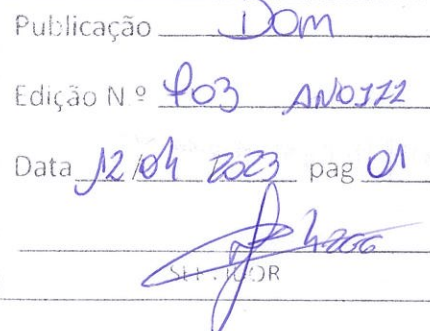 Publicação DOM
Edição N.º 903 ANO III
Data 12/04 2023 pag 01